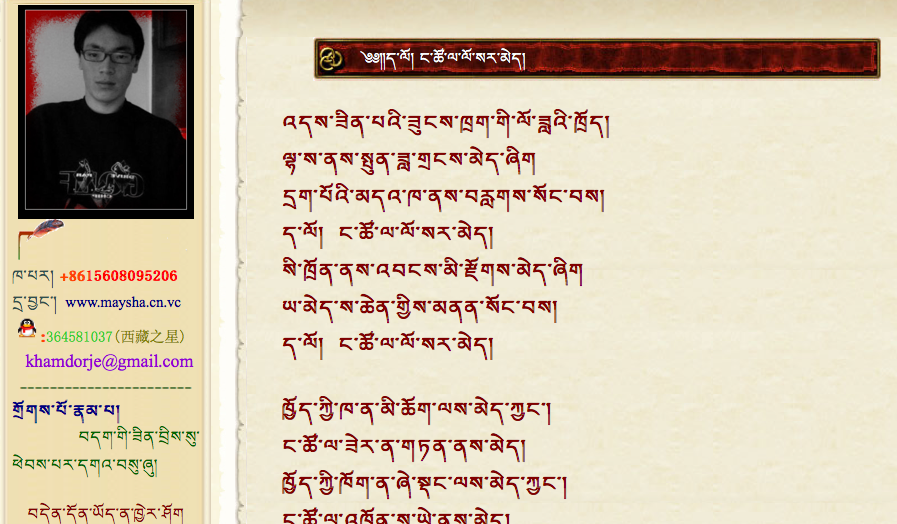 ཁ་པར། +8615608095206
དྲ་བྱང་། www.maysha.cn.vc
:364581037(西藏之星)
khamdorje@gmail.com
-----------------------
གྲོགས་པོ་རྣམ་པ།
བདག་གི་ཟིན་བྲིས་སུ་
ཕེབས་པར་དགའ་བསུ་ཞུ།
བདེན་དོན་ཡོད་ན་ཁྱེར་ཤོག
༄༅།།ད་ལོ། ང་ཚོ་ལ་ལོ་སར་མེད།
འདས་ཟིན་པའི་ཟུངས་ཁྲག་གི་ལོ་ཟླའི་ཁྲོད།
ལྷ་ས་ནས་སྤུན་ཟླ་གྲངས་མེད་ཞིག
དྲག་པོའི་མདའ་ཁ་ནས་བརླགས་སོང་བས།
ད་ལོ། ང་ཚོ་ལ་ལོ་སར་མེད།
སི་ཁྲོན་ནས་འབངས་མི་རྫོགས་མེད་ཞིག
ཡ་མེད་ས་ཆེན་གྱིས་མནན་སོང་བས།
ད་ལོ། ང་ཚོ་ལ་ལོ་སར་མེད།
ཁྱོད་ཀྱི་ཁ་ན་མི་ཆོག་ལས་མེད་ཀྱང་།
ང་ཚོ་ལ་ཟེར་ན་གཏན་ནས་མེད།
ཁྱོད་ཀྱི་ཁོག་ན་ཞེ་སྡང་ལས་མེད་ཀྱང་།
ང་ཚོ་ལ་འཁོན་ས་ཡེ་ནས་མེད།